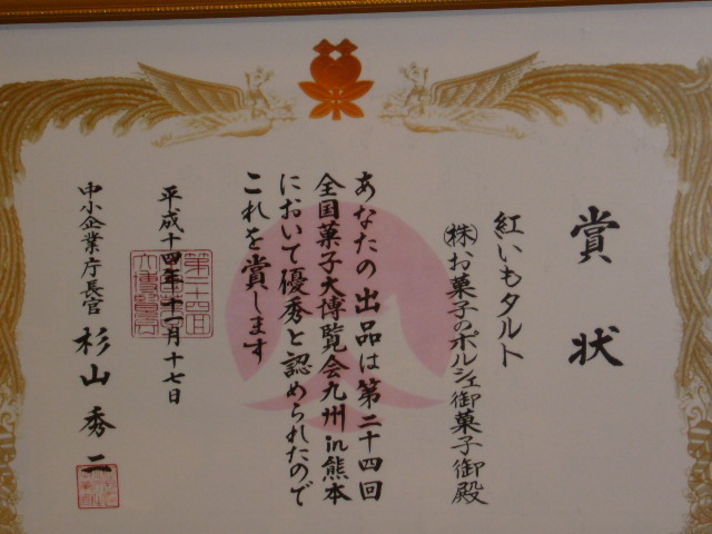 賞状
紅いもタルト
㈱お菓子のポルシェ御菓子御殿
あなたの出品は第二十四回
全国菓子大博覧会九州in熊本
において優秀と認められたので
これを賞します
平成十四年十一月十七日
中小企業庁長官 杉山秀二